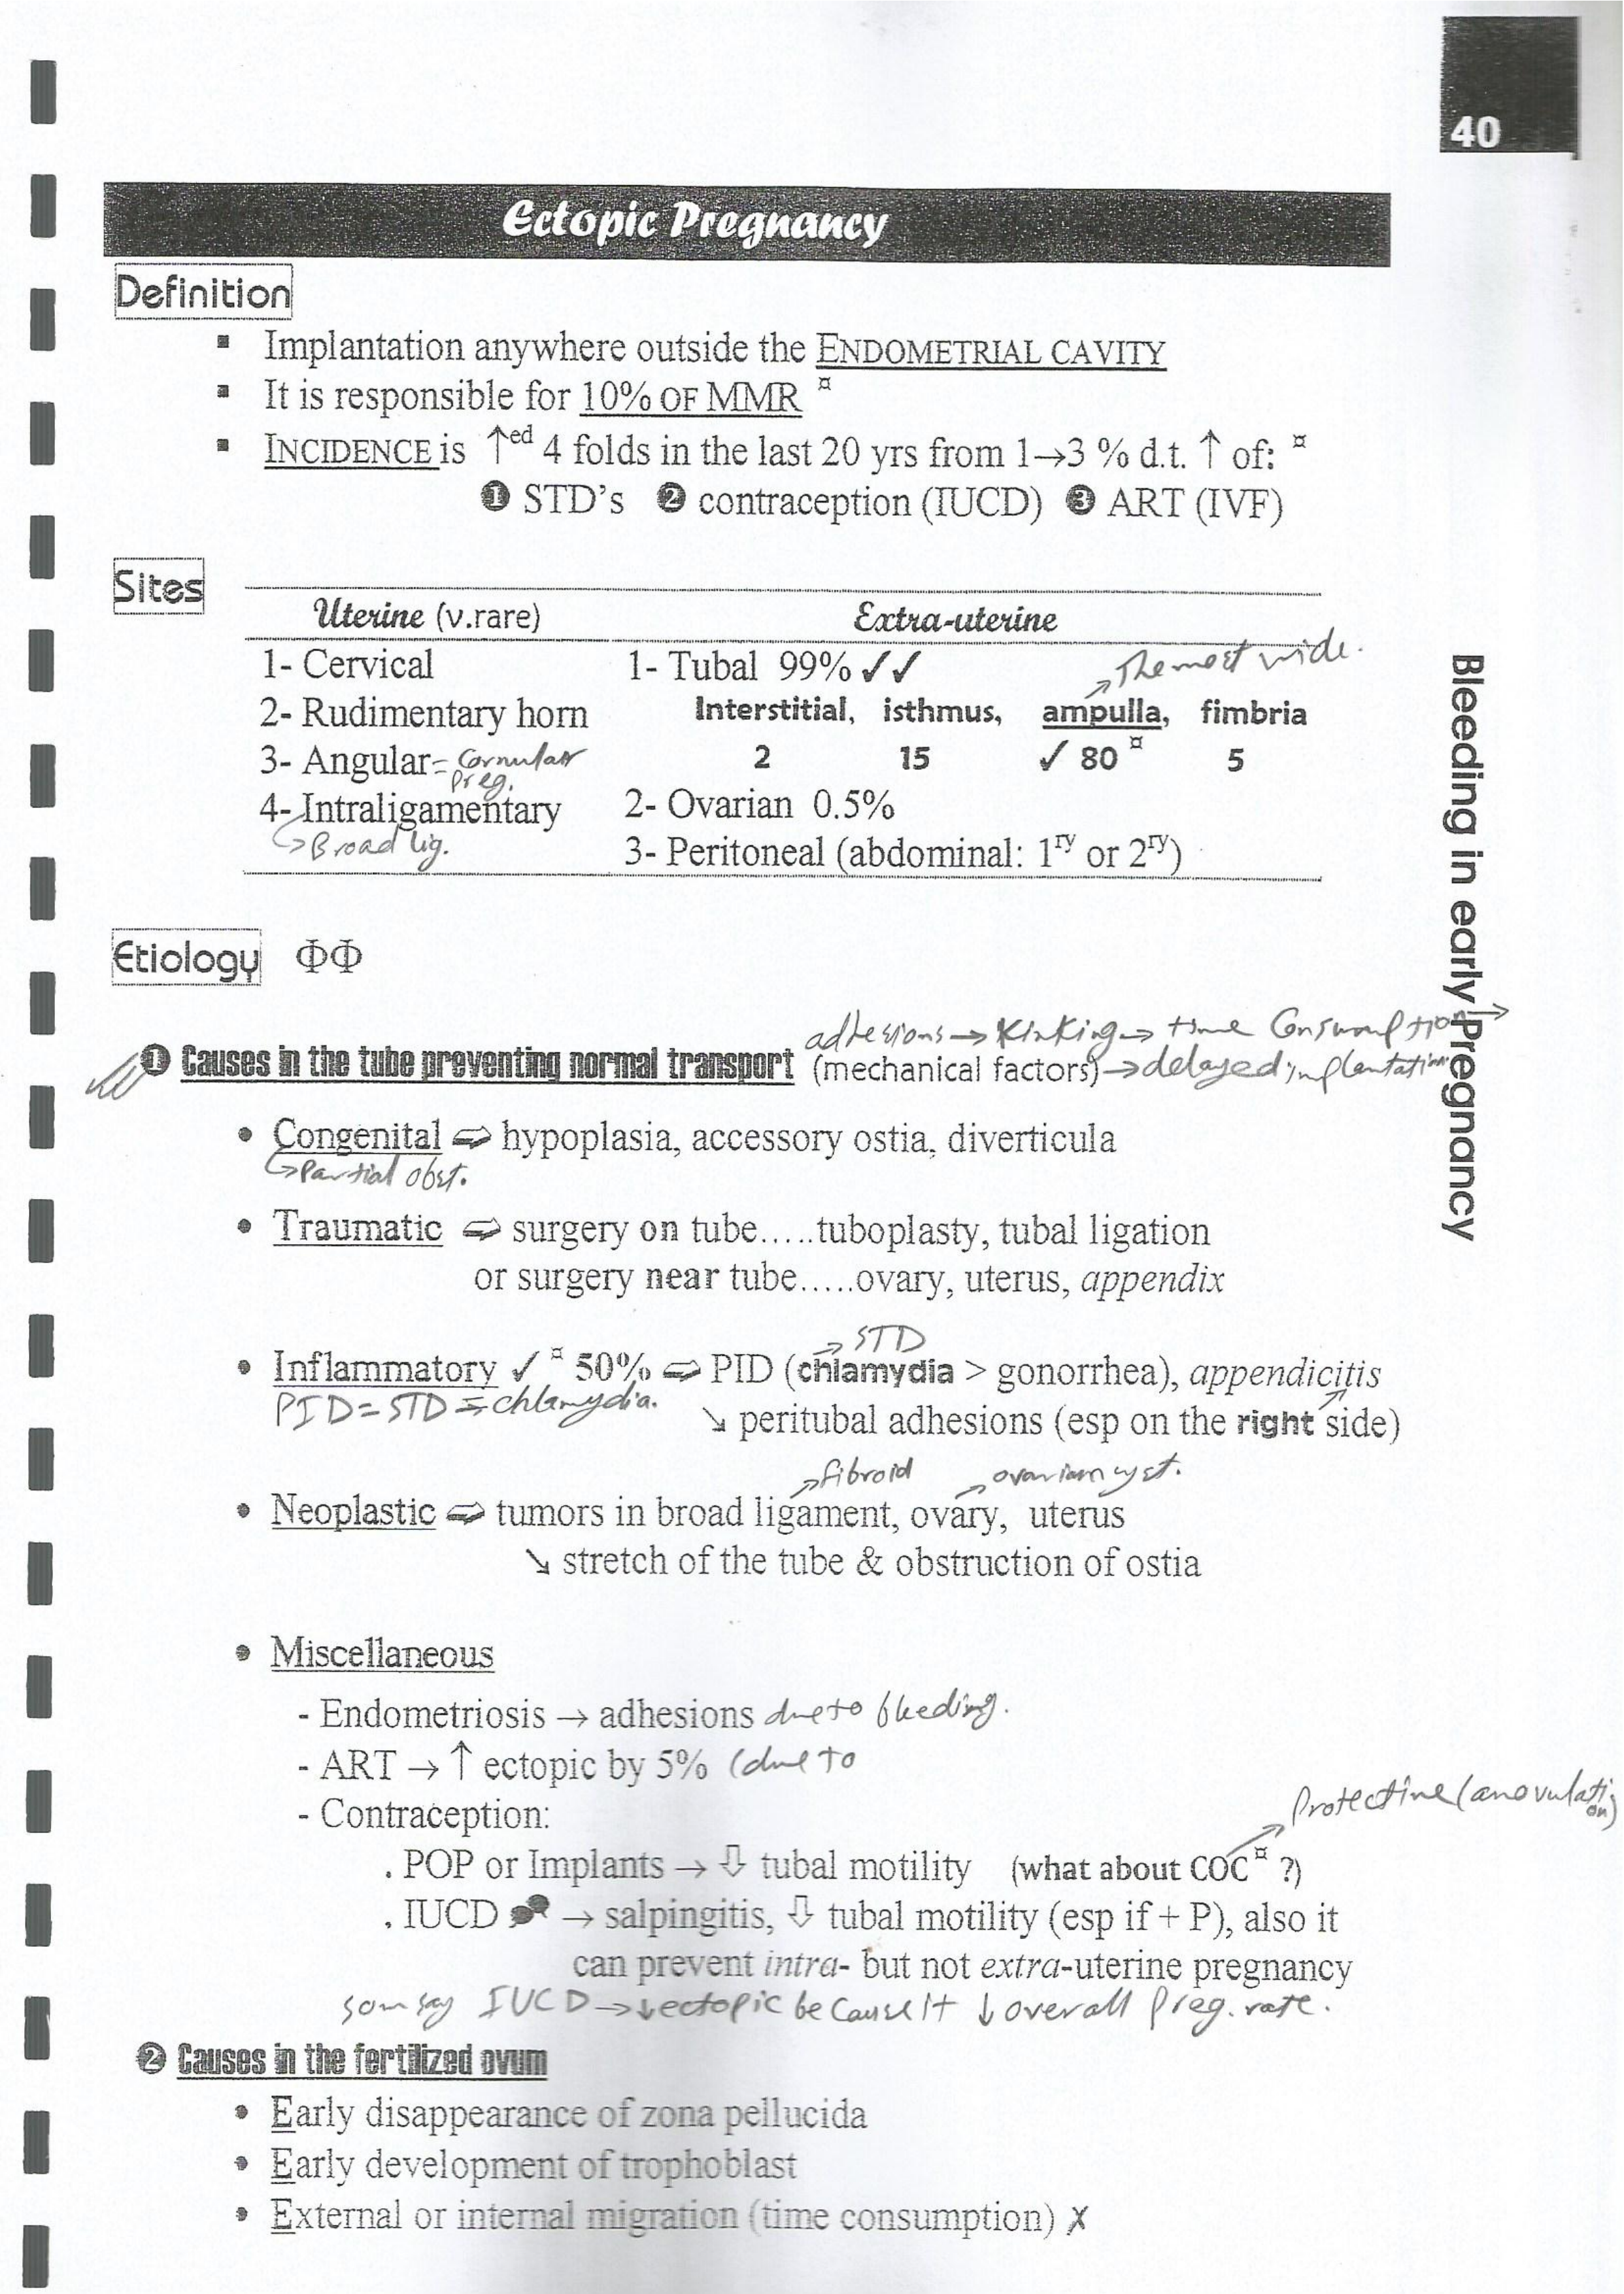 40
Ectopic Pregnancy
Definition
▪ Implantation anywhere outside the ENDOMETRIAL CAVITY
▪ It is responsible for 10% OF MMR ¤
▪ INCIDENCE is ↑ed 4 folds in the last 20 yrs from 1→3 % d.t. ↑ of: ¤
❶ STD's ❷ contraception (IUCD) ❸ ART (IVF)
Sites
Uterine (v.rare) Extra-uterine
1- Cervical 1- Tubal 99% ✓✓ The most wide.
2- Rudimentary horn Interstitial, isthmus, ampulla, fimbria
3- Angular = Cornular preg. 2 15 ✓ 80 ¤ 5
4- Intraligamentary 2- Ovarian 0.5%
↳ Broad lig. 3- Peritoneal (abdominal: 1ry or 2ry)
Bleeding in early Pregnancy
Etiology ΦΦ
adhesions → Kinking → time Consumption →
❶ Causes in the tube preventing normal transport (mechanical factors) → delayed implantation
• Congenital ⇨ hypoplasia, accessory ostia, diverticula
↳ Partial obst.
• Traumatic ⇨ surgery on tube.....tuboplasty, tubal ligation
or surgery near tube.....ovary, uterus, appendix
→ STD
• Inflammatory ✓ ¤ 50% ⇨ PID (chlamydia > gonorrhea), appendicitis
PID = STD = chlamydia. ↘ peritubal adhesions (esp on the right side)
→ fibroid → ovarian cyst.
• Neoplastic ⇨ tumors in broad ligament, ovary, uterus
↘ stretch of the tube & obstruction of ostia
• Miscellaneous
- Endometriosis → adhesions due to bleeding.
- ART → ↑ ectopic by 5% (due to
- Contraception:
Protective (anovulation)
. POP or Implants → ⇩ tubal motility (what about COC ¤ ?)
. IUCD → salpingitis, ⇩ tubal motility (esp if + P), also it
can prevent intra- but not extra-uterine pregnancy
som say IUCD → ↓ ectopic because it ↓ overall preg. rate.
❷ Causes in the fertilized ovum
• Early disappearance of zona pellucida
• Early development of trophoblast
• External or internal migration (time consumption) ✗